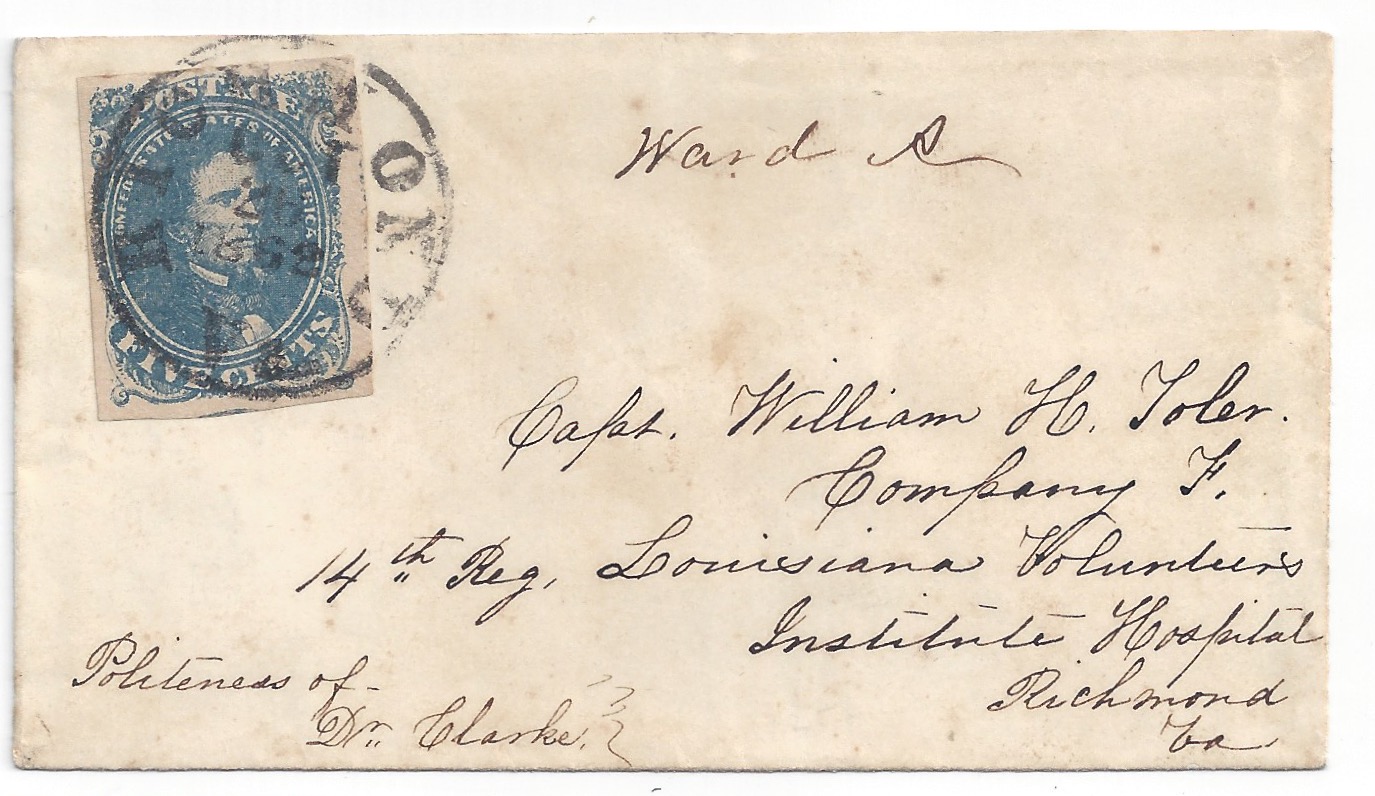 POSTAGE
CONFEDERATE STATES OF AMERICA
FIVE CENTS
RICHMOND
Va
Ward A
Capt. William H. Toler.
Company F.
14th Reg, Louisiana Volunteers
Institute Hospital
Richmond
Va
Politeness of
Dr. Clarke.